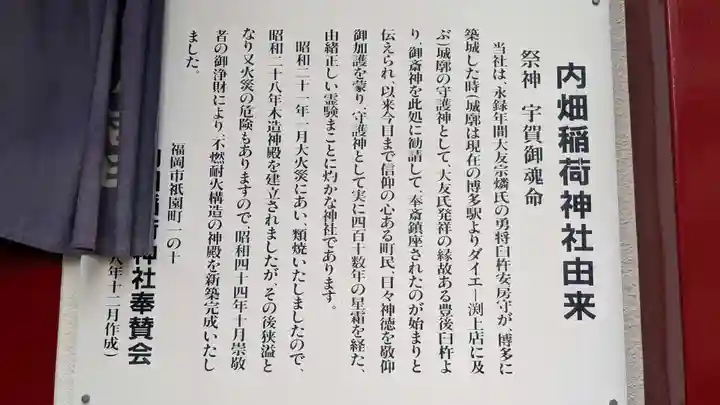 内畑稲荷神社由来
祭神 宇賀御魂命
当社は、永録年間大友宗燐氏の勇将臼杵安房守が、博多に
築城した時(城廓は現在の博多駅よりダイエー渕上店に及
ぶ)城廓の守護神として、大友氏発祥の縁故ある豊後臼杵よ
り、御斎神を此処に勧請して、奉斎鎮座されたのが始まりと
伝えられ、以来今日まで信仰の心ある町民、日々神徳を敬仰
御加護を蒙り、守護神として実に四百十数年の星霜を経た、
由緒正しい霊験まことに灼かな神社であります。
昭和二十一年一月大火災にあい、類焼いたしましたので、
昭和二十八年木造神殿を建立されましたが、その後狭溢と
なり又火災の危険もありますので、昭和四十四年十月崇敬
者の御浄財により、不燃耐火構造の神殿を新築完成いたし
ました。
福岡市祇園町一の十
神社奉賛会
八年十二月作成)